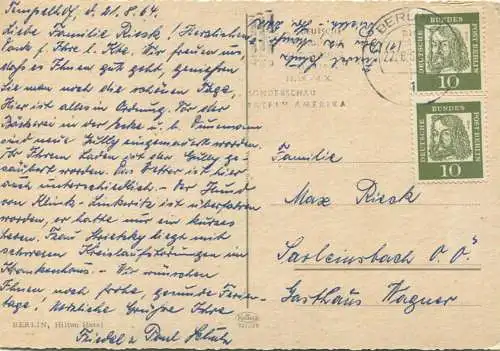 Tempelhof, d. 21.8.64
Liebe Familie Riesk! Herzlichen
Dank f. Ihre l. Kte. Wir freuen uns
daß es Ihnen gut geht, genießen
Sie man noch die schönen Tage.
Hier ist alles in Ordnung. Vor der
Bäckerei in der Ecke u. b.
wird neue Gully eingemauert worden.
Vor Ihrem Laden ist der Gully ge-
säubert worden. Das Wetter ist hier
auch unterschiedlich. - Der Hund
von ist überfahren
worden, er hatte nur ein kurzes
Leben. Frau liegt mit
schweren Kreislaufstörungen im
Krankenhaus. - Wir wünschen
Ihnen noch frohe gesunde Ferien-
tage! Herzliche Grüße Ihre
Friedel u. Paul
BERLIN, Hilton Hotel
BERLIN
SONDERSCHAU
LATEIN AMERIKA
DEUTSCHE BUNDES POST BERLIN
10
DEUTSCHE BUNDES POST BERLIN
10
Familie
Max Riesk
Sarleinsbach O.Ö.
Gasthaus Wagner